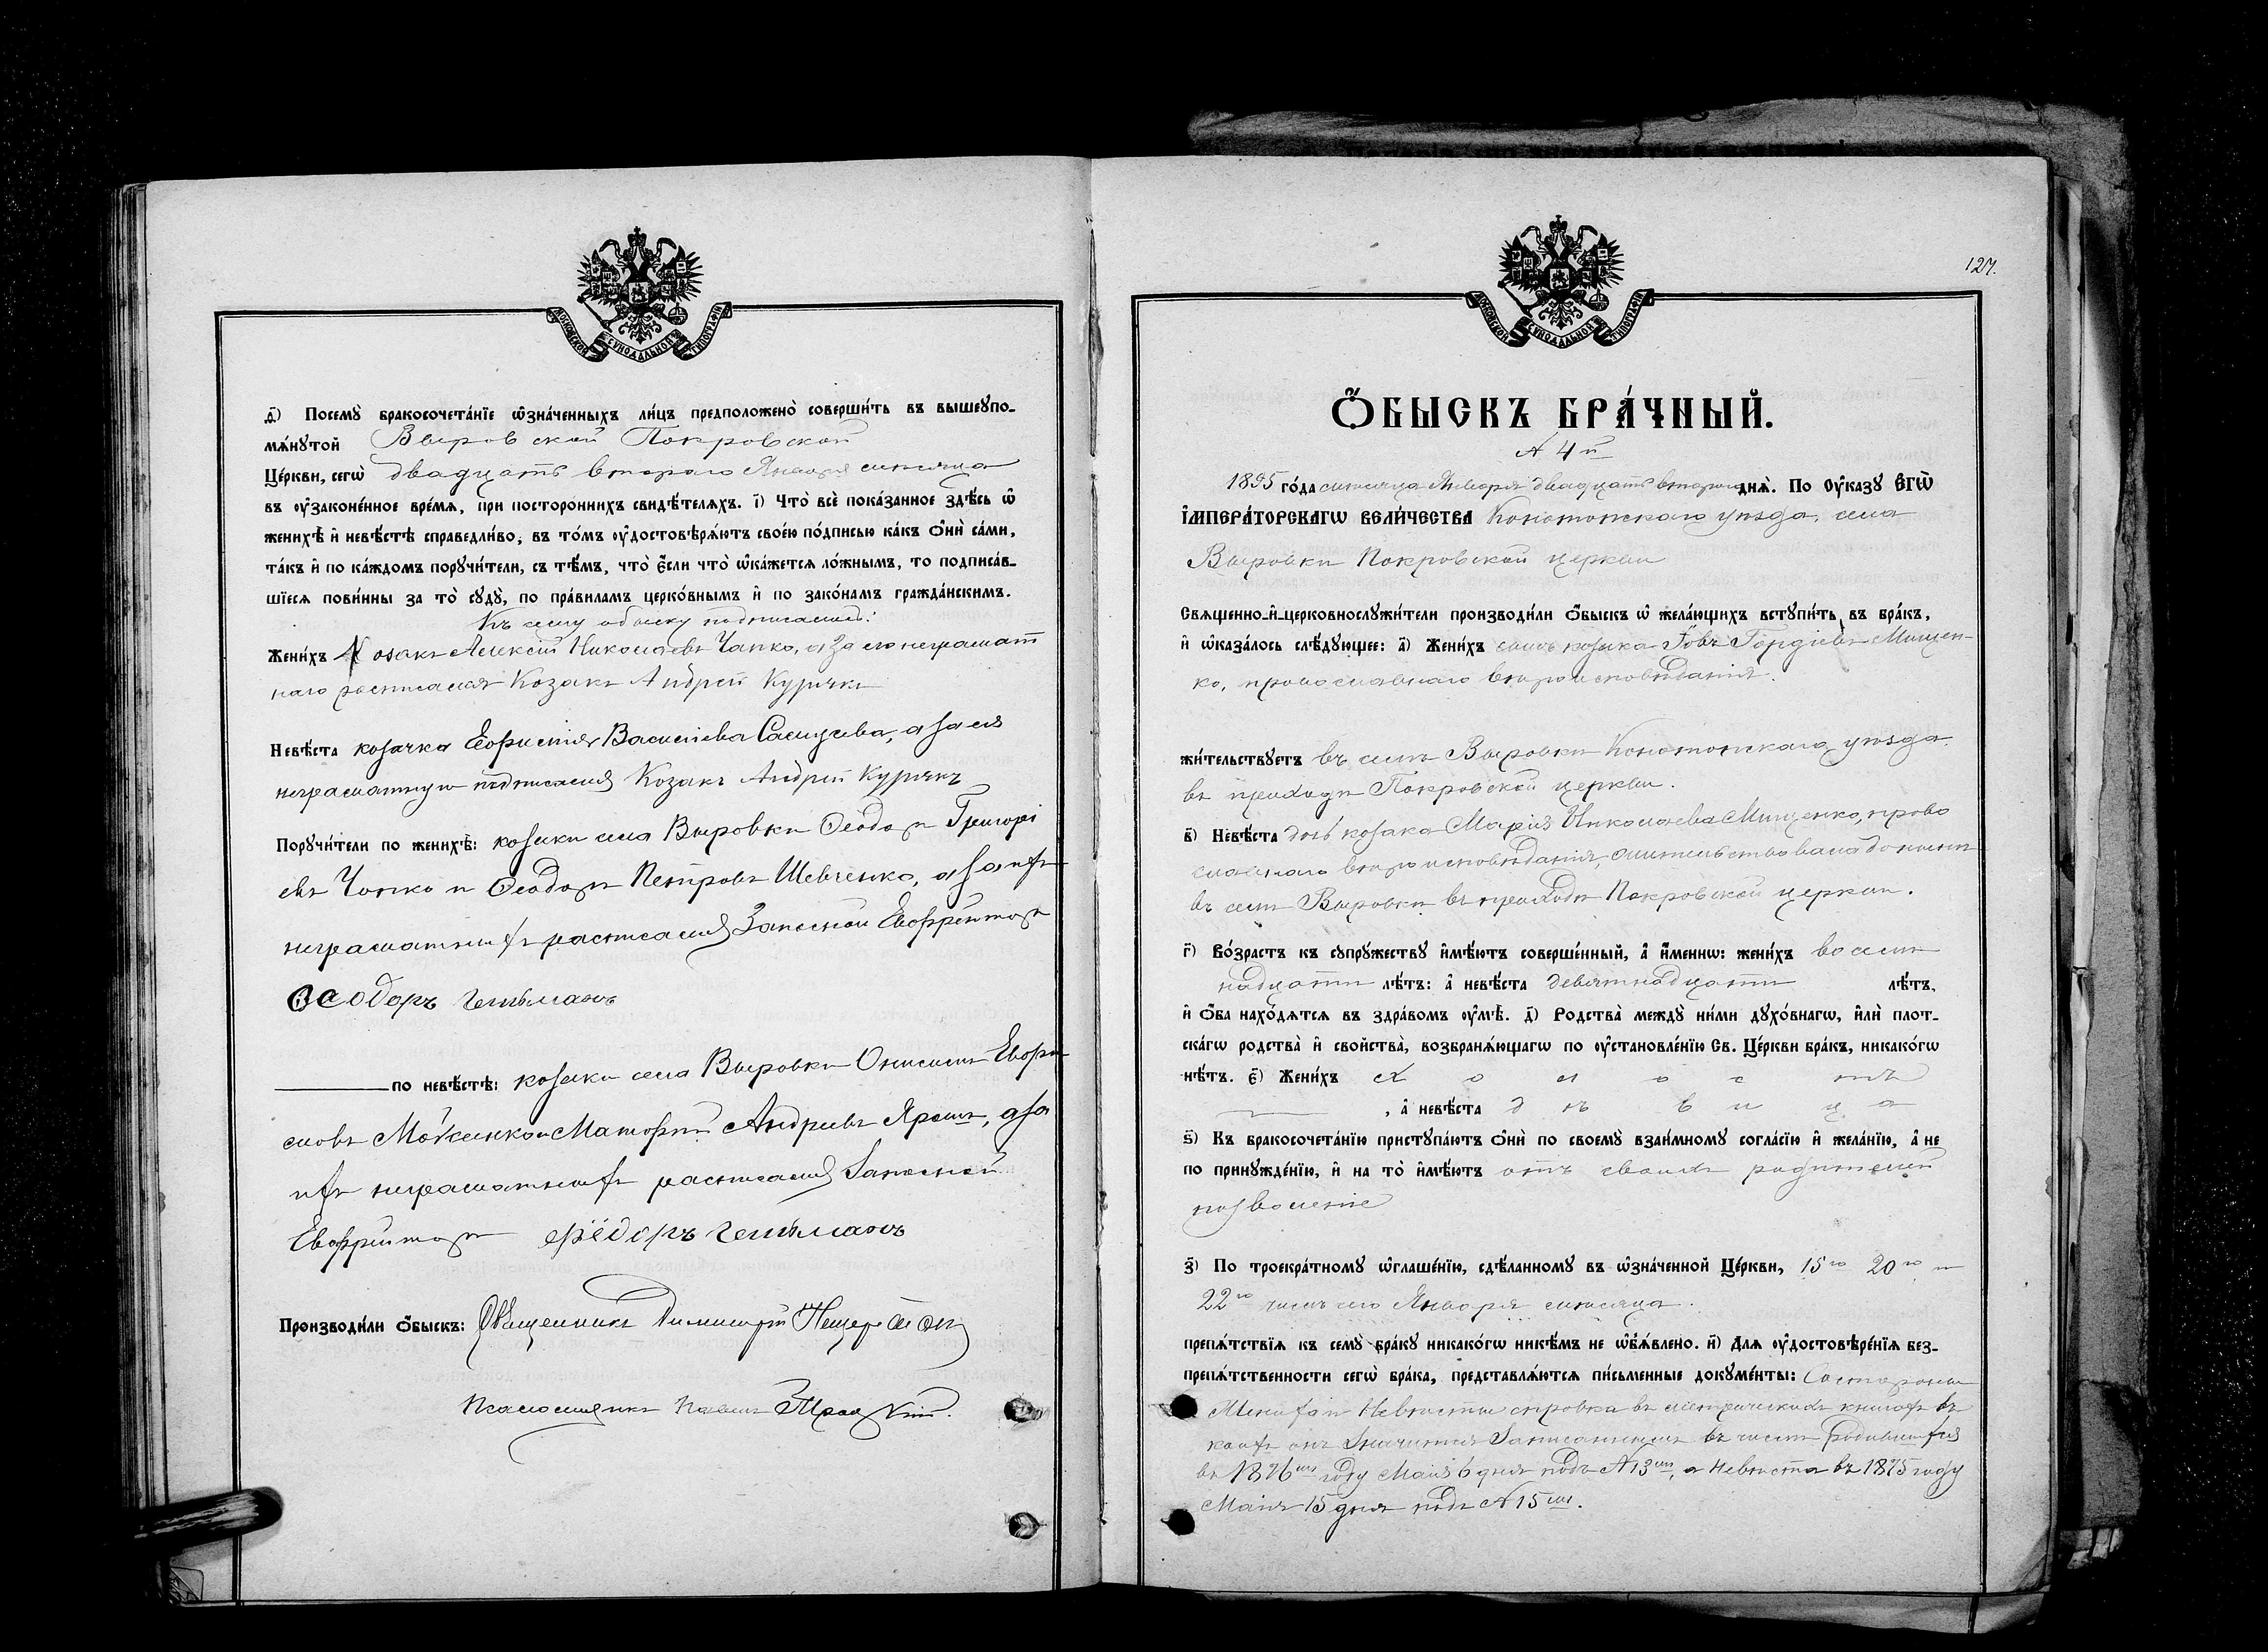 МОСКОВСКОЙ СѴНОДАЛЬНОЙ ТИПОГРАФІИ
д҃) Посемꙋ̀ бракосочета́нїе ѡ҆зна́ченныхъ ли́цъ предположено̀ соверши́ть въ вышеꙋпо-
мѧ́нꙋтой Выровской Покровской
Це́ркви, сегѡ̀ двадцать втораго Января мѣсяца
въ ᲂу҆законе́нное вре́мѧ, при посторонних свидѣ́телѧхъ. і҃) Что̀ всѐ пока́занное здѣ́сь ѡ҆
женихѣ̀ и҆ невѣ́стѣ справедли́во, въ то́мъ ᲂу҆достовѣрѧ́ютъ свое́ю по́дписью ка́къ ѻ҆нѝ са́ми,
та́къ и҆ по ка́ждомъ порꙋчи́тели, съ тѣ́мъ, что̀ є҆́сли что̀ ѡ҆ка́жетсѧ ло́жнымъ, то подписа́в-
шїесѧ пови́нны за то̀ сꙋдꙋ̀, по пра́виламъ церко́внымъ и҆ по зако́намъ гражда́нскимъ.
Къ сему обыску подписались:
Жени́хъ Козакъ Алексѣй Николаевъ Чапко, а за его неграмат
наго росписался Козакъ Андрей Курячъ
Невѣ́ста козачка Еофимія Василіева Самусева, а за ея
неграматную подписался Козакъ Андрей Курячъ
Порꙋчи́тели по женихѣ̀: козаки села Выровки Ѳеодоръ Григорі
евъ Чапко и Ѳеодоръ Петровъ Шевченко, а за ихъ
неграматныхъ расписался Запасной Ефрейторъ
Ѳеодоръ Гетьманъ
по невѣ́стѣ: козаки села Выровки
Андреевъ а за
ихъ неграматныхъ расписался Запасной
Ефрейторъ Ѳёдоръ Гетьманъ
Производи́ли ѻ҆́быскъ: Священникъ Димитрій
Псаломщикъ Павелъ
127.
МОСКОВСКОЙ СѴНОДАЛЬНОЙ ТИПОГРАФІИ
Ѻ҆БЫСКЪ БРА́ЧНЫЙ.
№ 4й
1895 го́да мѣсяца Января двадцать втораго днѧ̀. По ᲂу҆казꙋ Е҆гѡ̀
І҆МПЕРА́ТОРСКАГѠ ВЕЛИ́ЧЕСТВА Конотопскаго уѣзда, села
Выровки Покровской церкви
Свѧщенно-и҆-церковнослꙋжи́тели производи́ли ѻ҆́быскъ ѡ҆ жела́ющихъ встꙋпи́ть въ бра́къ,
и҆ ѡ҆каза́лось слѣ́дꙋющее: а҃) Жени́хъ сынъ козака Іовъ Гордіевъ Мищен-
ко, православнаго вѣроисповѣданія.
жи́тельствꙋетъ въ селѣ Выровки Конотопскаго уѣзда
въ приходѣ Покровской церкви.
в҃) Невѣ́ста дочь козака Марія Николаева Мищенко, право
славнаго вѣроисповѣданія, жительствовала донынѣ
въ селѣ Выровки въ приходѣ Покровской церкви.
г҃) Во́зрастъ къ сꙋпрꙋ́жествꙋ и҆мѣ́ютъ соверше́нный, а҆ и҆́меннѡ: жени́хъ восем
надцати лѣ́тъ: а҆ невѣ́ста девятнадцати лѣ́тъ,
и҆ ѻ҆́ба нахо́дѧтсѧ въ здра́вомъ ᲂу҆мѣ̀. д҃) Родства̀ междꙋ̀ ни́ми дꙋхо́внагѡ, и҆лѝ плот-
ска́гѡ родства̀ и҆ свойства̀, возбранѧ́ющагѡ по ᲂу҆становле́нїю Св. Це́ркви бра́къ, никако́гѡ
нѣ́тъ. є҃) Жени́хъ холостъ
, а҆ невѣ́ста дѣвица
ѕ҃) Къ бракосочета́нїю пристꙋпа́ютъ ѻ҆нѝ по своемꙋ̀ взаи́мномꙋ согла́сїю и҆ жела́нїю, а҆ не
по принꙋжде́нїю, и҆ на то̀ и҆мѣ́ютъ отъ своихъ родителей
позволеніе
з҃) По троекра́тномꙋ ѡ҆глаше́нїю, сдѣ́ланномꙋ въ ѡ҆зна́ченной Це́ркви, 15го 20го и
22го числъ сего Января мѣсяца.
препѧ́тствїѧ къ семꙋ̀ бра́кꙋ никако́гѡ никѣ́мъ не ѡ҆б̾ѧ́влено. и҃) Длѧ ᲂу҆достовѣре́нїѧ без-
препѧ́тственности сегѡ̀ бра́ка, представлѧ́ютсѧ пи́сьменные докꙋме́нты: Со стороны
Жениха и Невѣсты справка въ метрическихъ книгахъ въ
коихъ онъ значится записаннымъ въ числѣ родившихся
въ 1876мъ году Маія 6 дня подъ № 13мъ, а невѣста въ 1875 году
Маія 15 дня подъ № 15мъ.